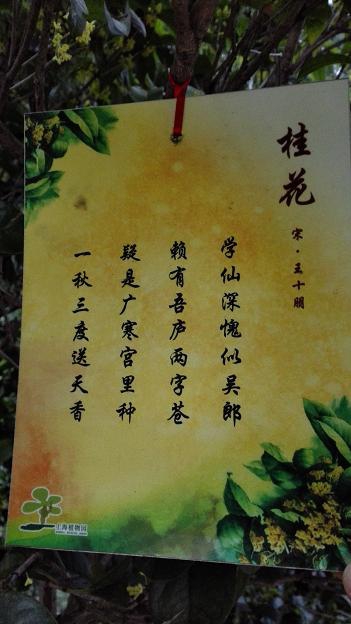 桂花
宋·王十朋
学仙深愧似吴郎
赖有吾庐两字苍
疑是广寒宫里种
一秋三度送天香
上海植物园